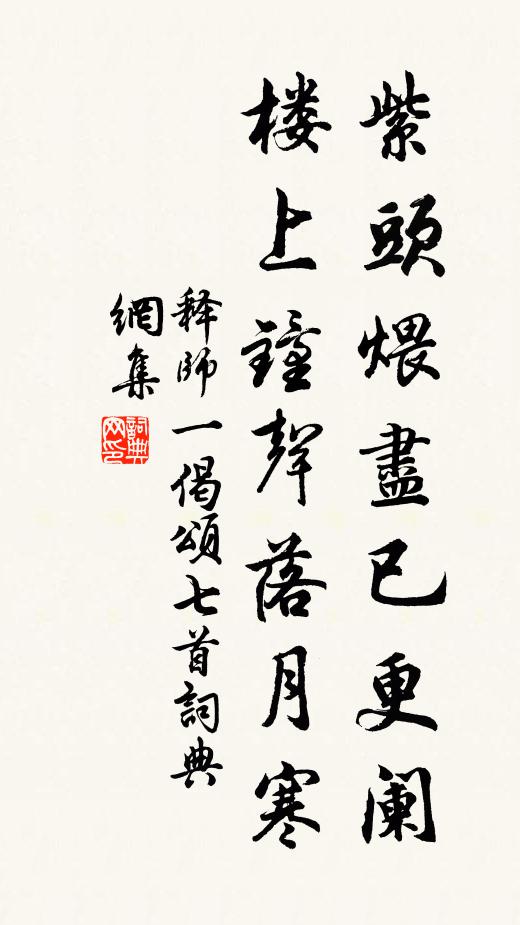 紫頭煨盡已更阑
楼上鐘聲落月寒
释師一偈頌七首詞典
網集
詞典网印